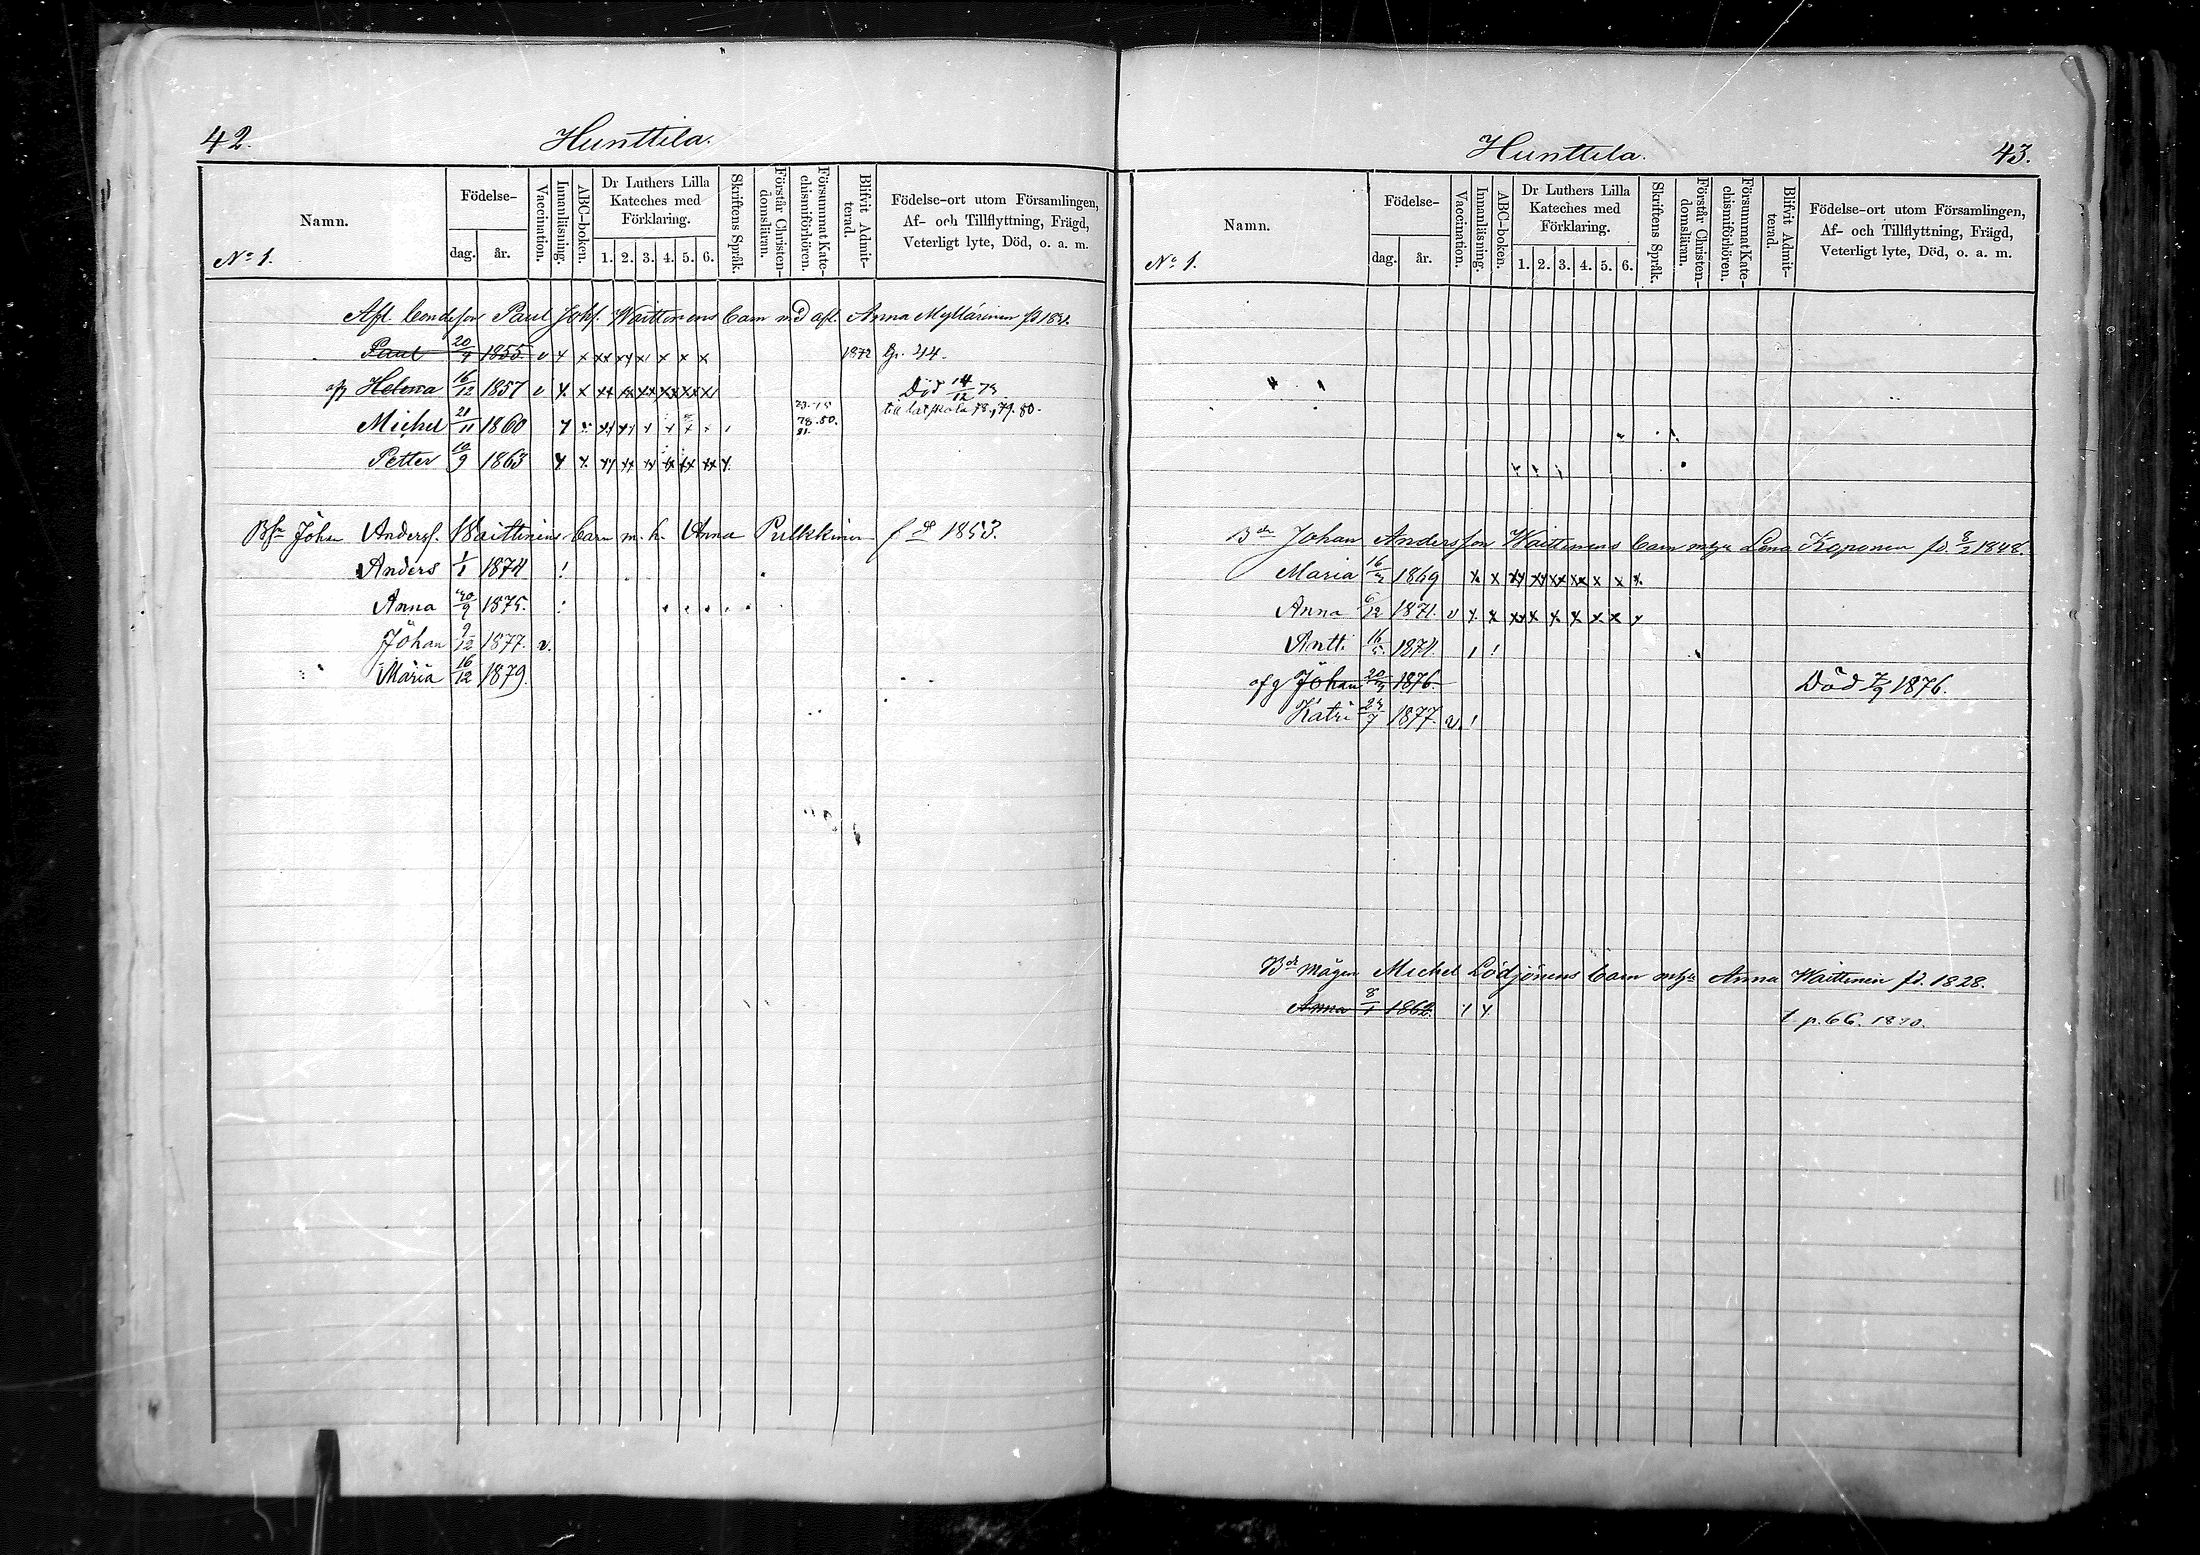 42. Hunttila.
Namn. Födelse- Vaccination. Innanläsning. ABC-boken. Dr Luthers Lilla Kateches med Förklaring. Skriftens Språk. Förstår Christen-domsläran. Försummat Kate-chismiförhören. Blifvit Admit-terad. Födelse-ort utom Församlingen, Af- och Tillflyttning, Frägd, Veterligt lyte, Död, o. a. m.
No 1. dag. år. 1. 2. 3. 4. 5. 6.
Afl. Paul Johs. Waittinens barn med afl. Anna Myllärinen
Paul 20/9 1855. v 1872 44.
afg Helena 16/12 1857 v Död 14/12 73
78. 79. 80.
Michel 21/11 1860 78. 80.
81.
Petter 10/9 1863
Johan Anderss. Waittinens Barn m. h. Anna Pulkkinen 1853.
Anders 1/1 1874
Anna 30/9 1875.
Johan 9/12 1877. v.
Maria 16/12 1879.
Hunttila. 43.
Namn. Födelse- Vaccination. Innanläsning. ABC-boken. Dr Luthers Lilla Kateches med Förklaring. Skriftens Språk. Förstår Christen-domsläran. Försummat Kate-chismiförhören. Blifvit Admit-terad. Födelse-ort utom Församlingen, Af- och Tillflyttning, Frägd, Veterligt lyte, Död, o. a. m.
No 1. dag. år. 1. 2. 3. 4. 5. 6.
Bdn Johan Andersson Waittinens barn Lena Koponen fd. 8/2 1848.
Maria 16/3 1869
Anna 6/12 1871. v
Antti 16/5 1874.
afg Johan 20/3 1876. Död 7/9 1876.
Katri 23/7 1877. v.
Bdr mågen Michel Lödjönens barn Anna Waittinen fd. 1828.
Anna 8/1 1862. t p. 66. 1870.